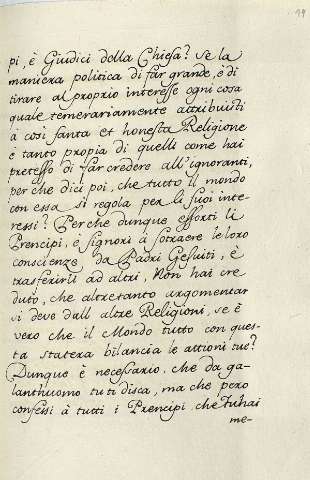 19
pi, è Giudici della Chiesa? Se la
maniera politica di far grande, è di
tirare al proprio interesse ogni cosa
quale temerariamente attribuisti
à così santa et honesta Religione
è tanto propia di quelli come hai
pretesso di far credere all'ignoranti,
perche dici poi, che tutto il mondo
con essa si regola per li suoi inte-
ressi? Perche dunque essorti li
Prencipi, è signori à sotraere le loro
conscienze da Padri Gesuiti, è
trasferirli ad altri, Non hai cre
duto, che altretanto argomentar
si deve dall altre Religioni, se è
vero che il Mondo tutto con ques-
ta statera bilancia le attioni tue?
Dunque è necessario, che da ga-
lanthuomo tu ti disca, ma che pero
confessi à tutti i Prencipi, che Tu hai
me-